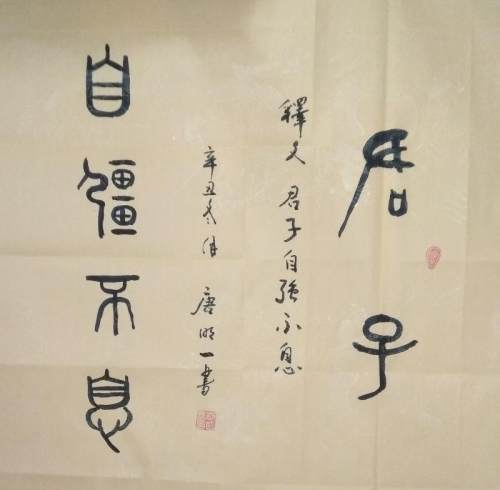 君子
釋文 君子自强不息
辛丑冬月 唐明一書
自彊不息